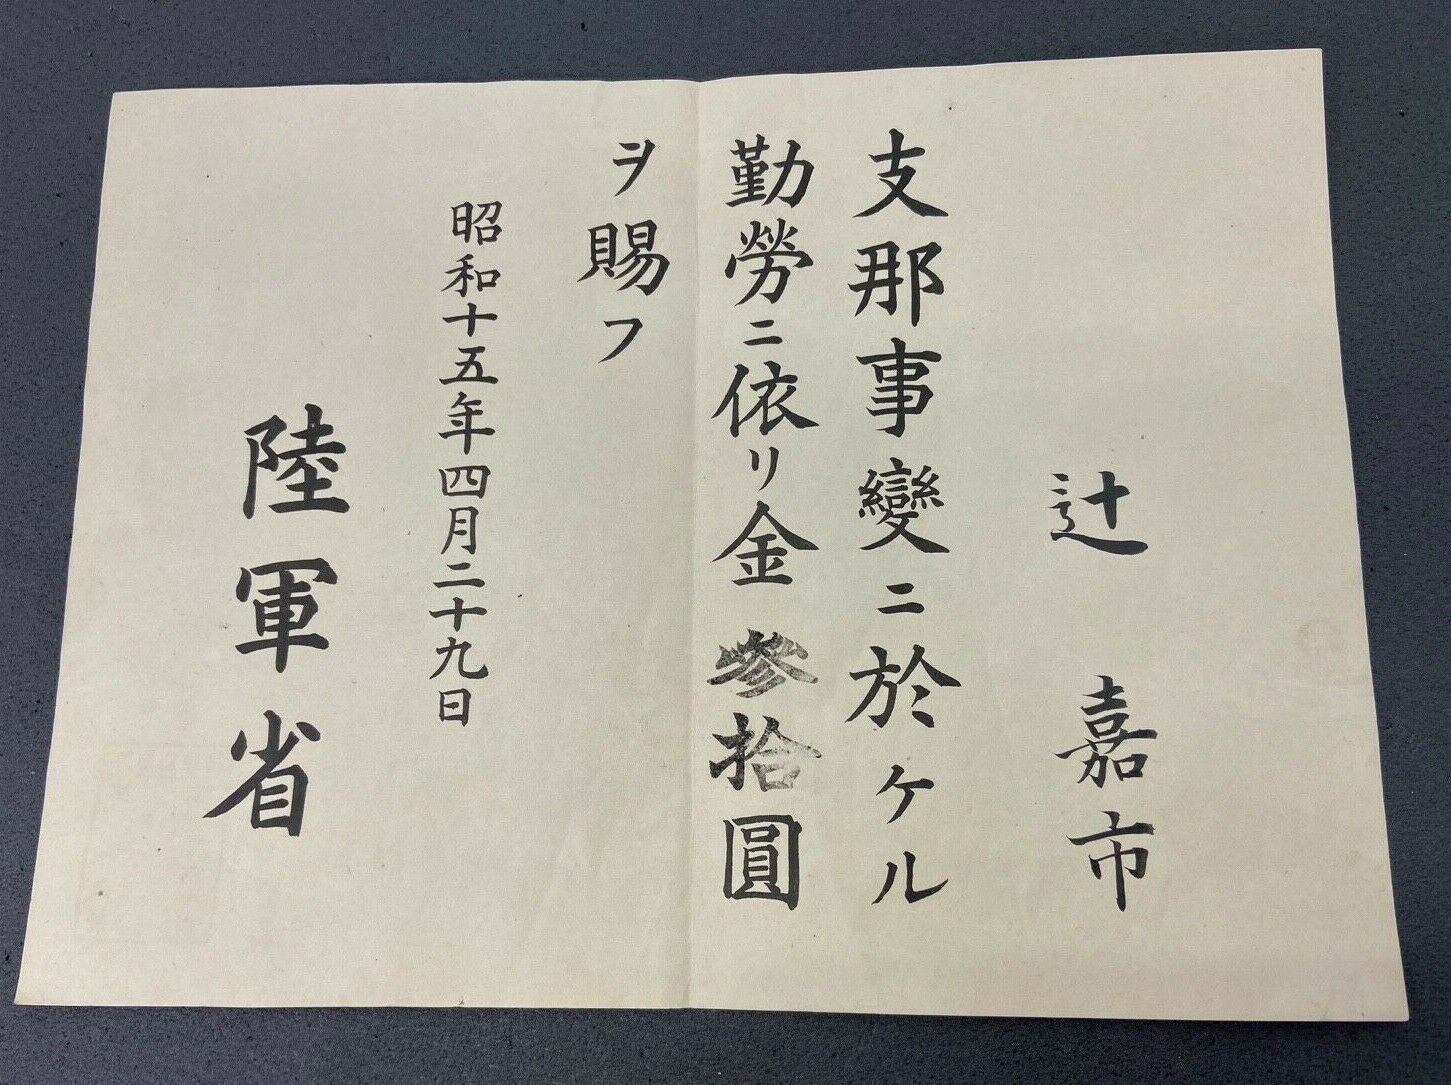 辻 嘉市
支那事變ニ於ケル
勤勞ニ依リ金參拾圓
ヲ賜フ
昭和十五年四月二十九日
陸軍省